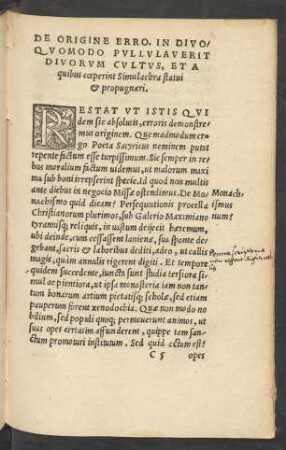 DE ORIGINE ERRO. IN DIVO,
QVOMODO PVLLVLAVERIT
DIVORVM CVLTVS, ET A
quibus cœperint Simulachra statui
& propugnari.
RESTAT VT ISTIS QVI
dem sic absolutis, erroris demonstre
mus originem. Quemadmodum er
go Poeta Satyricus neminem putat
repente factum esse turpissimum. Sic semper in re
bus moralium factum uidemus, ut malorum maxi
ma sub boni irrepserint specie. Id quod non multis
ante diebus in negocio Missæ ostendimus. De Mo
nachismo quid dicam? Persequutionis procella
Christianorum plurimos, sub Galerio Maximiano
tyrannisq; reliquis, in uastum deiecit hæremum,
ubi deinde, cum cessassent lanienæ, sua sponte de
gebant, sacris & laboribus dediti, adeo, ut callis
magis, quàm annulis rigerent digiti. Et tempore
quidem succedente, iuncta sunt studia tersiora simul
ac pientiora, ut ipsa monasteria iam non tan
tum bonarum artium pietatisq; scholæ, sed etiam
pauperum forent xenodochia. Quæ non modo no
bilium, sed populi quoq; permouerunt animos, ut
suas opes certatim affunderent, quippe tam san-
ctum promoturi institutum. Sed quid actum est?
Monach-
ismus
num!
C 5
opes